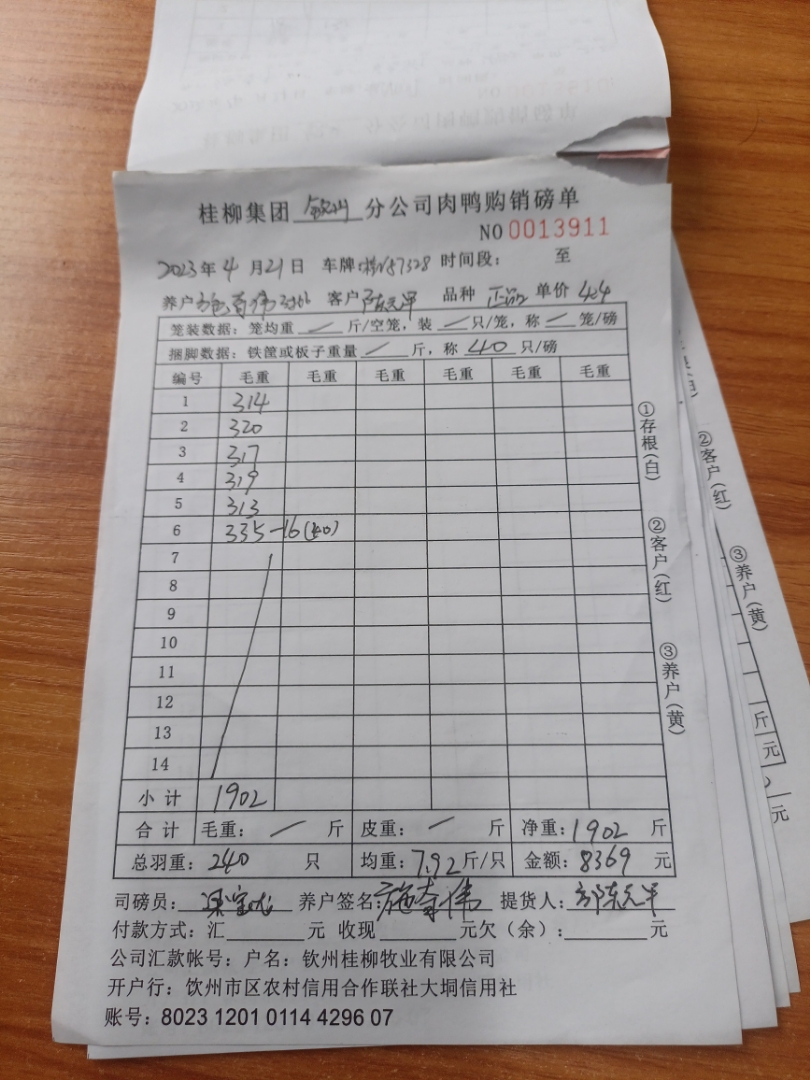 桂柳集团 钦州 分公司肉鸭购销磅单
NO 0013911
2023年 4 月 21 日 车牌: 87528 时间段: 至
养户 客户 品种 正品 单价 4.4
笼装数据: 笼均重 / 斤/空笼, 装 / 只/笼, 称 / 笼/磅
捆脚数据: 铁筐或板子重量 / 斤, 称 40 只/磅
编号 毛重 毛重 毛重 毛重 毛重 毛重
1 314
2 320
3 317
4 319
5 313
6 335-16(40)
7
8
9
10
11
12
13
14
小计 1902
合计 毛重: / 斤 皮重: / 斤 净重: 1902 斤
总羽重: 240 只 均重: 7.92 斤/只 金额: 8369 元
司磅员: 养户签名: 提货人:
付款方式: 汇 元 收现 元欠(余): 元
公司汇款帐号: 户名: 钦州桂柳牧业有限公司
开户行: 钦州市区农村信用合作联社大垌信用社
账号: 8023 1201 0114 4296 07
①存根(白)
②客户(红)
③养户(黄)
②客户(红)
③养户(黄)
斤
元
元